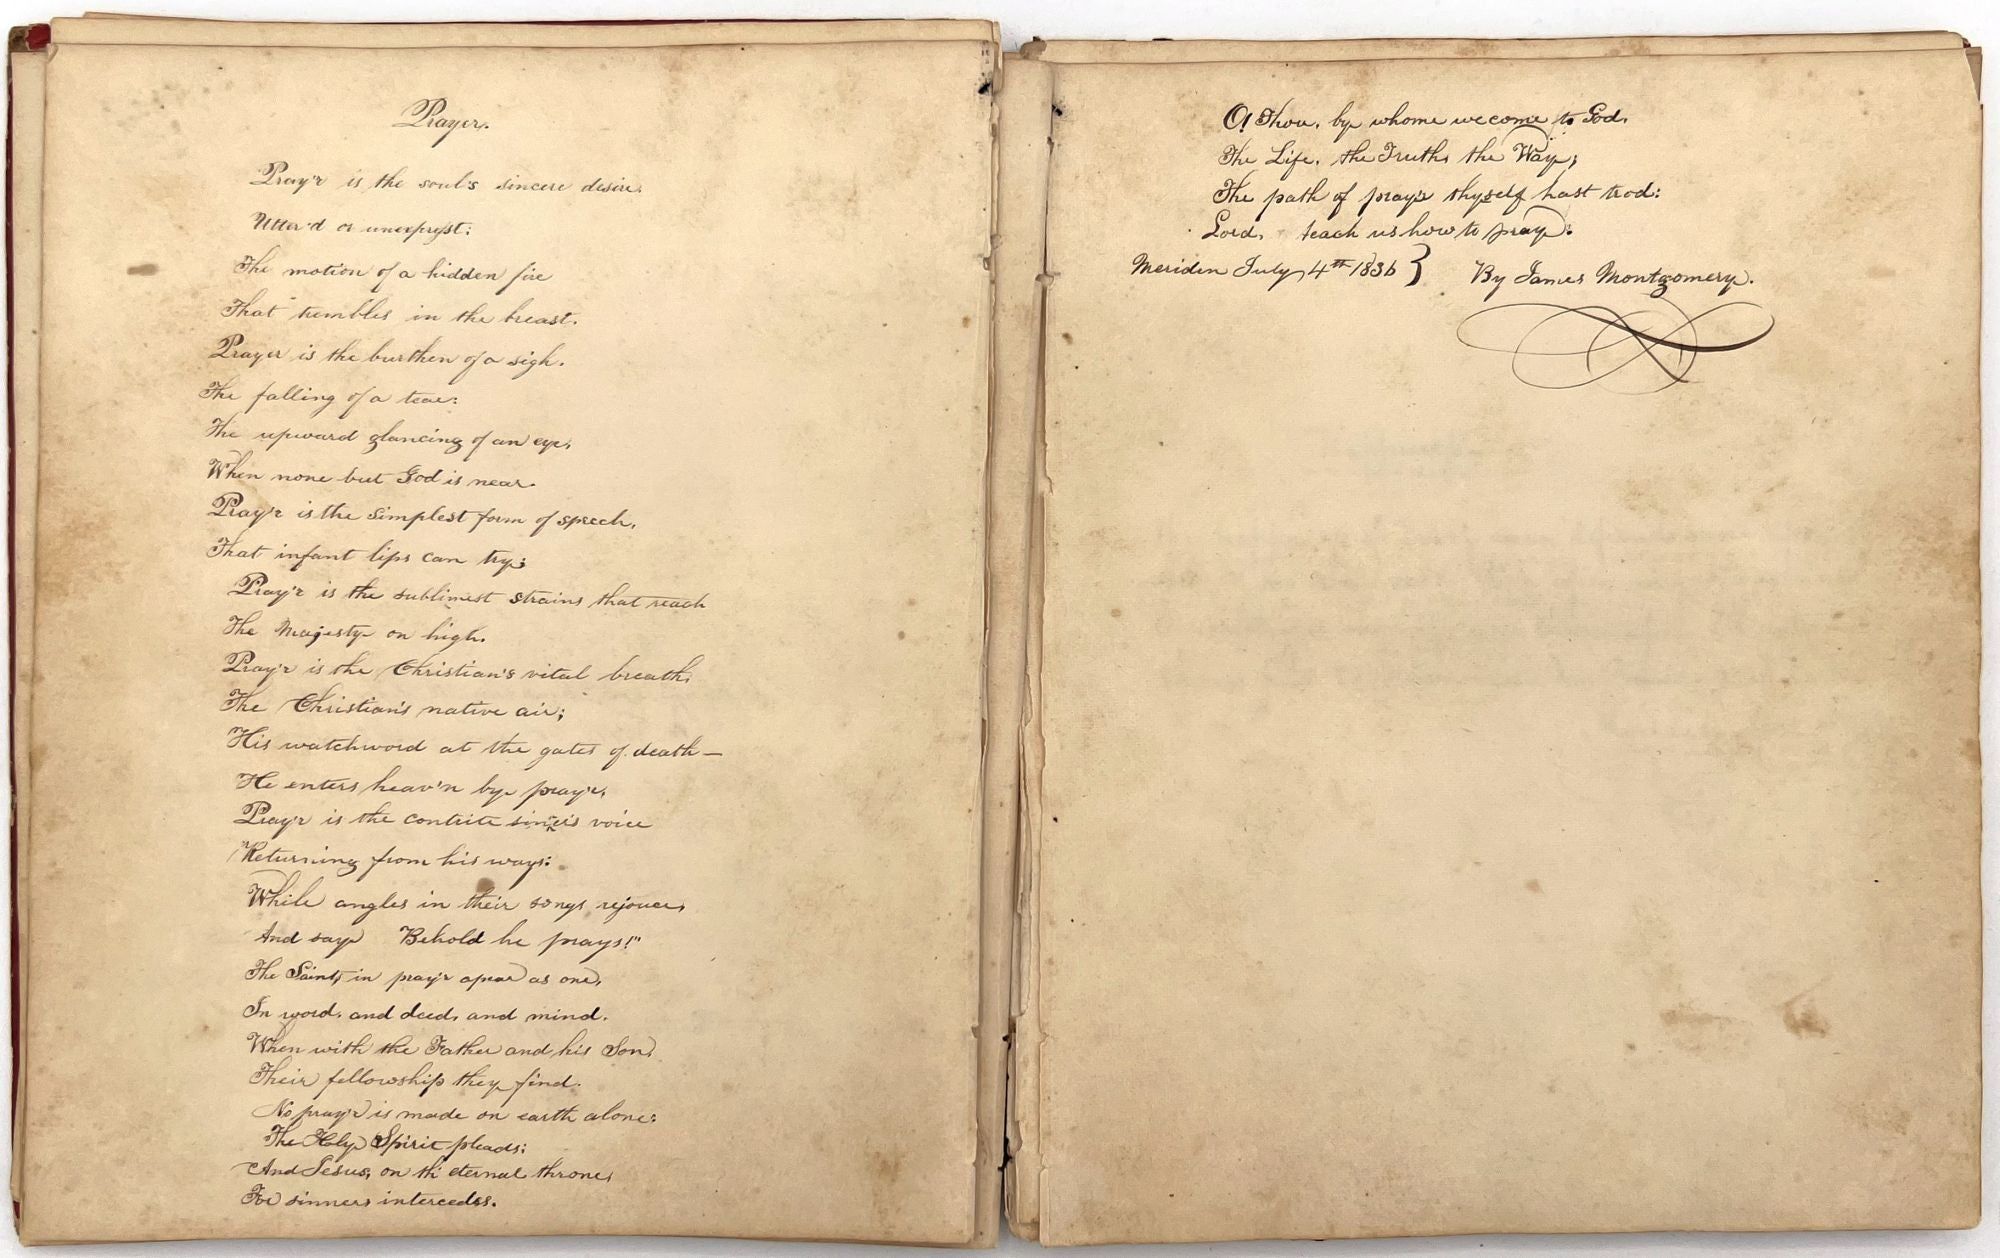 Prayer.
Pray'r is the soul's sincere desire.
Utter'd or unexprest:
The motion of a hidden fire
That trembles in the breast.
Prayer is the burthen of a sigh.
The falling of a tear:
The upward glancing of an eye,
When none but God is near.
Pray'r is the simplest form of speech,
That infant lips can try;
Pray'r is the sublimest strains that reach
The Majesty on high.
Pray'r is the Christian's vital breath,
The Christian's native air;
His watchword at the gates of death—
He enters heav'n by pray'r,
Pray'r is the contrite sinner's voice
Returning from his ways:
While angles in their songs rejouce,
And say Behold he prays!"
The Saints, in pray'r apear as one,
In word, and deed, and mind.
When with the Father and his Son,
Their fellowship they find.
No pray'r is made on earth alone:
The Holy Spirit pleads;
And Jesus, on th' eternal throne,
For sinners intercedes.
O! Thou, by whome we come to God,
The Life, the Truth, the Way;
The path of pray'r thyself hast trod:
Lord, teach us how to pray:
Meriden July, 4th 1836 } By James Montgomery.